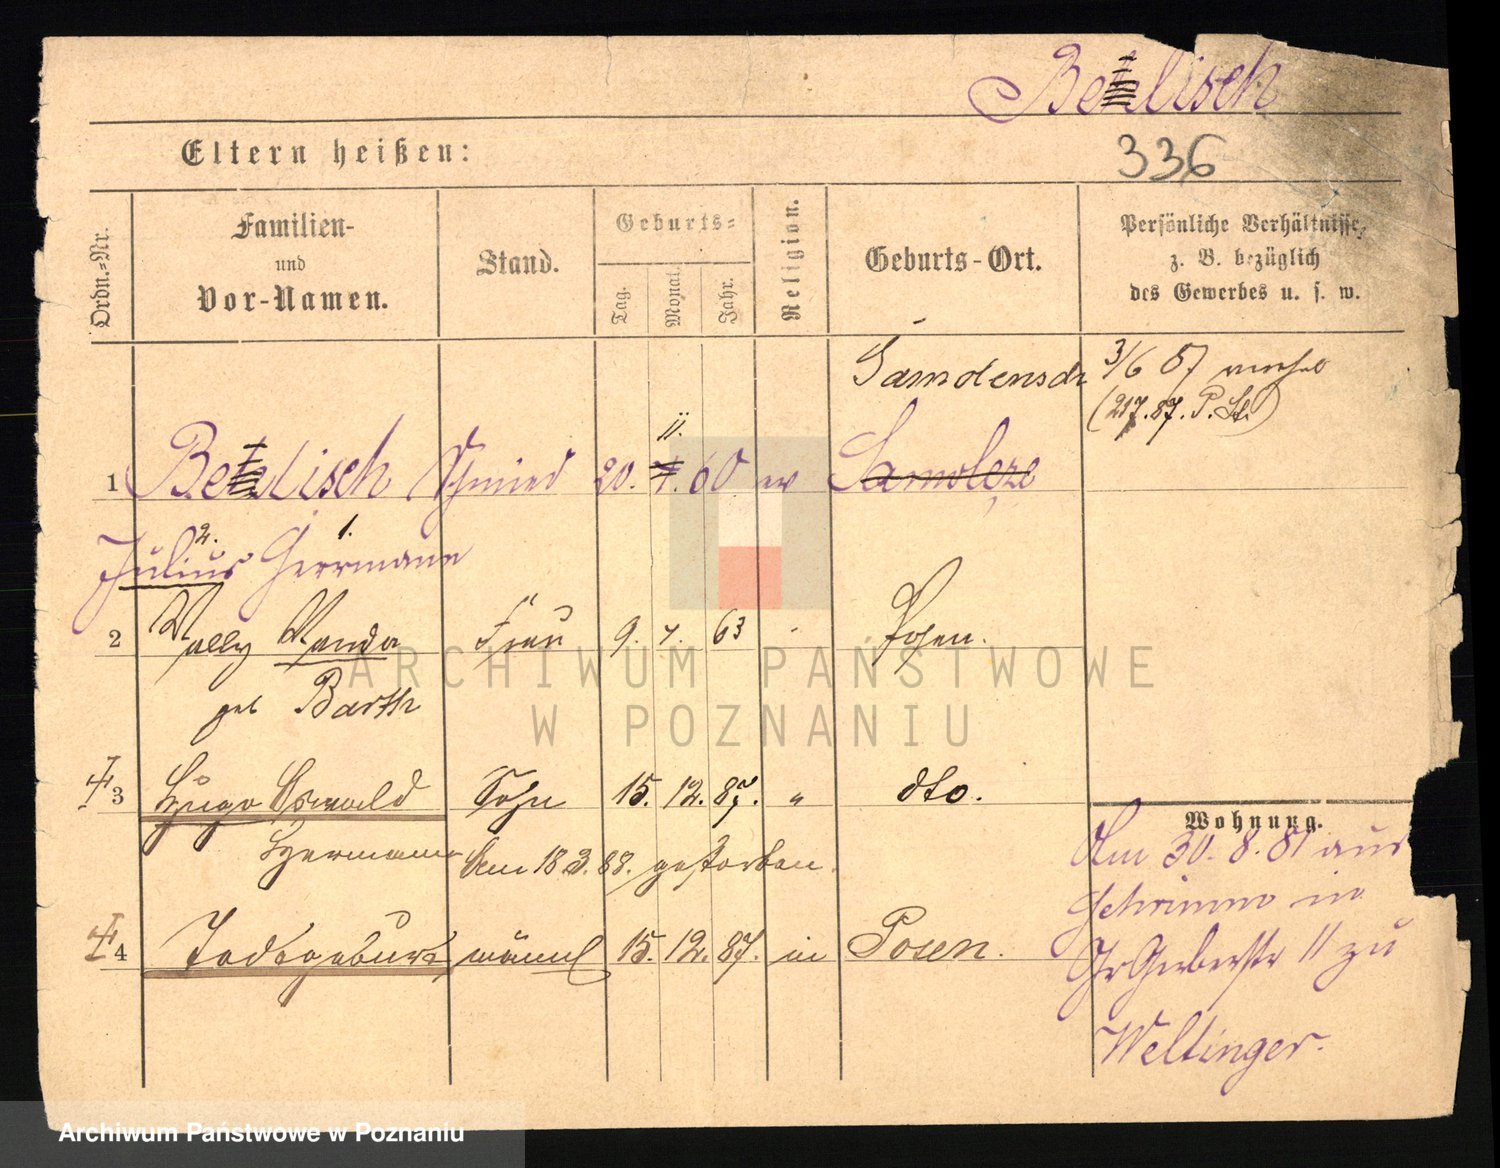 Betlisch
336
Eltern heißen:
Ordn.-Nr.
Familien-
und
Vor-Namen.
Stand.
Geburts-
Tag.
Monat.
Jahr.
Religion.
Geburts-Ort.
Persönliche Verhältnisse,
z. B. bezüglich
des Gewerbes u. s. w.
3/6 87
(217.87. P. St.)
11.
1 Betlisch Schmied 20. 4. 60 ev Samoleze
2. 1.
Julius Herrmann
2 Wally Wanda Frau 9. 4. 63 Posen.
geb Barth
3 Hugo Oswald Sohn 15. 12. 87. " dto.
Herrmann Am 18.3.88. gestorben.
4 Todtgeburt männl 15. 12. 87. Posen.
Wohnung.
Am 30.8.81 aus
Schrimm in
Gr Gerberstr 11 zu
Weltinger.
ARCHIWUM PAŃSTWOWE
W POZNANIU
Archiwum Państwowe w Poznaniu